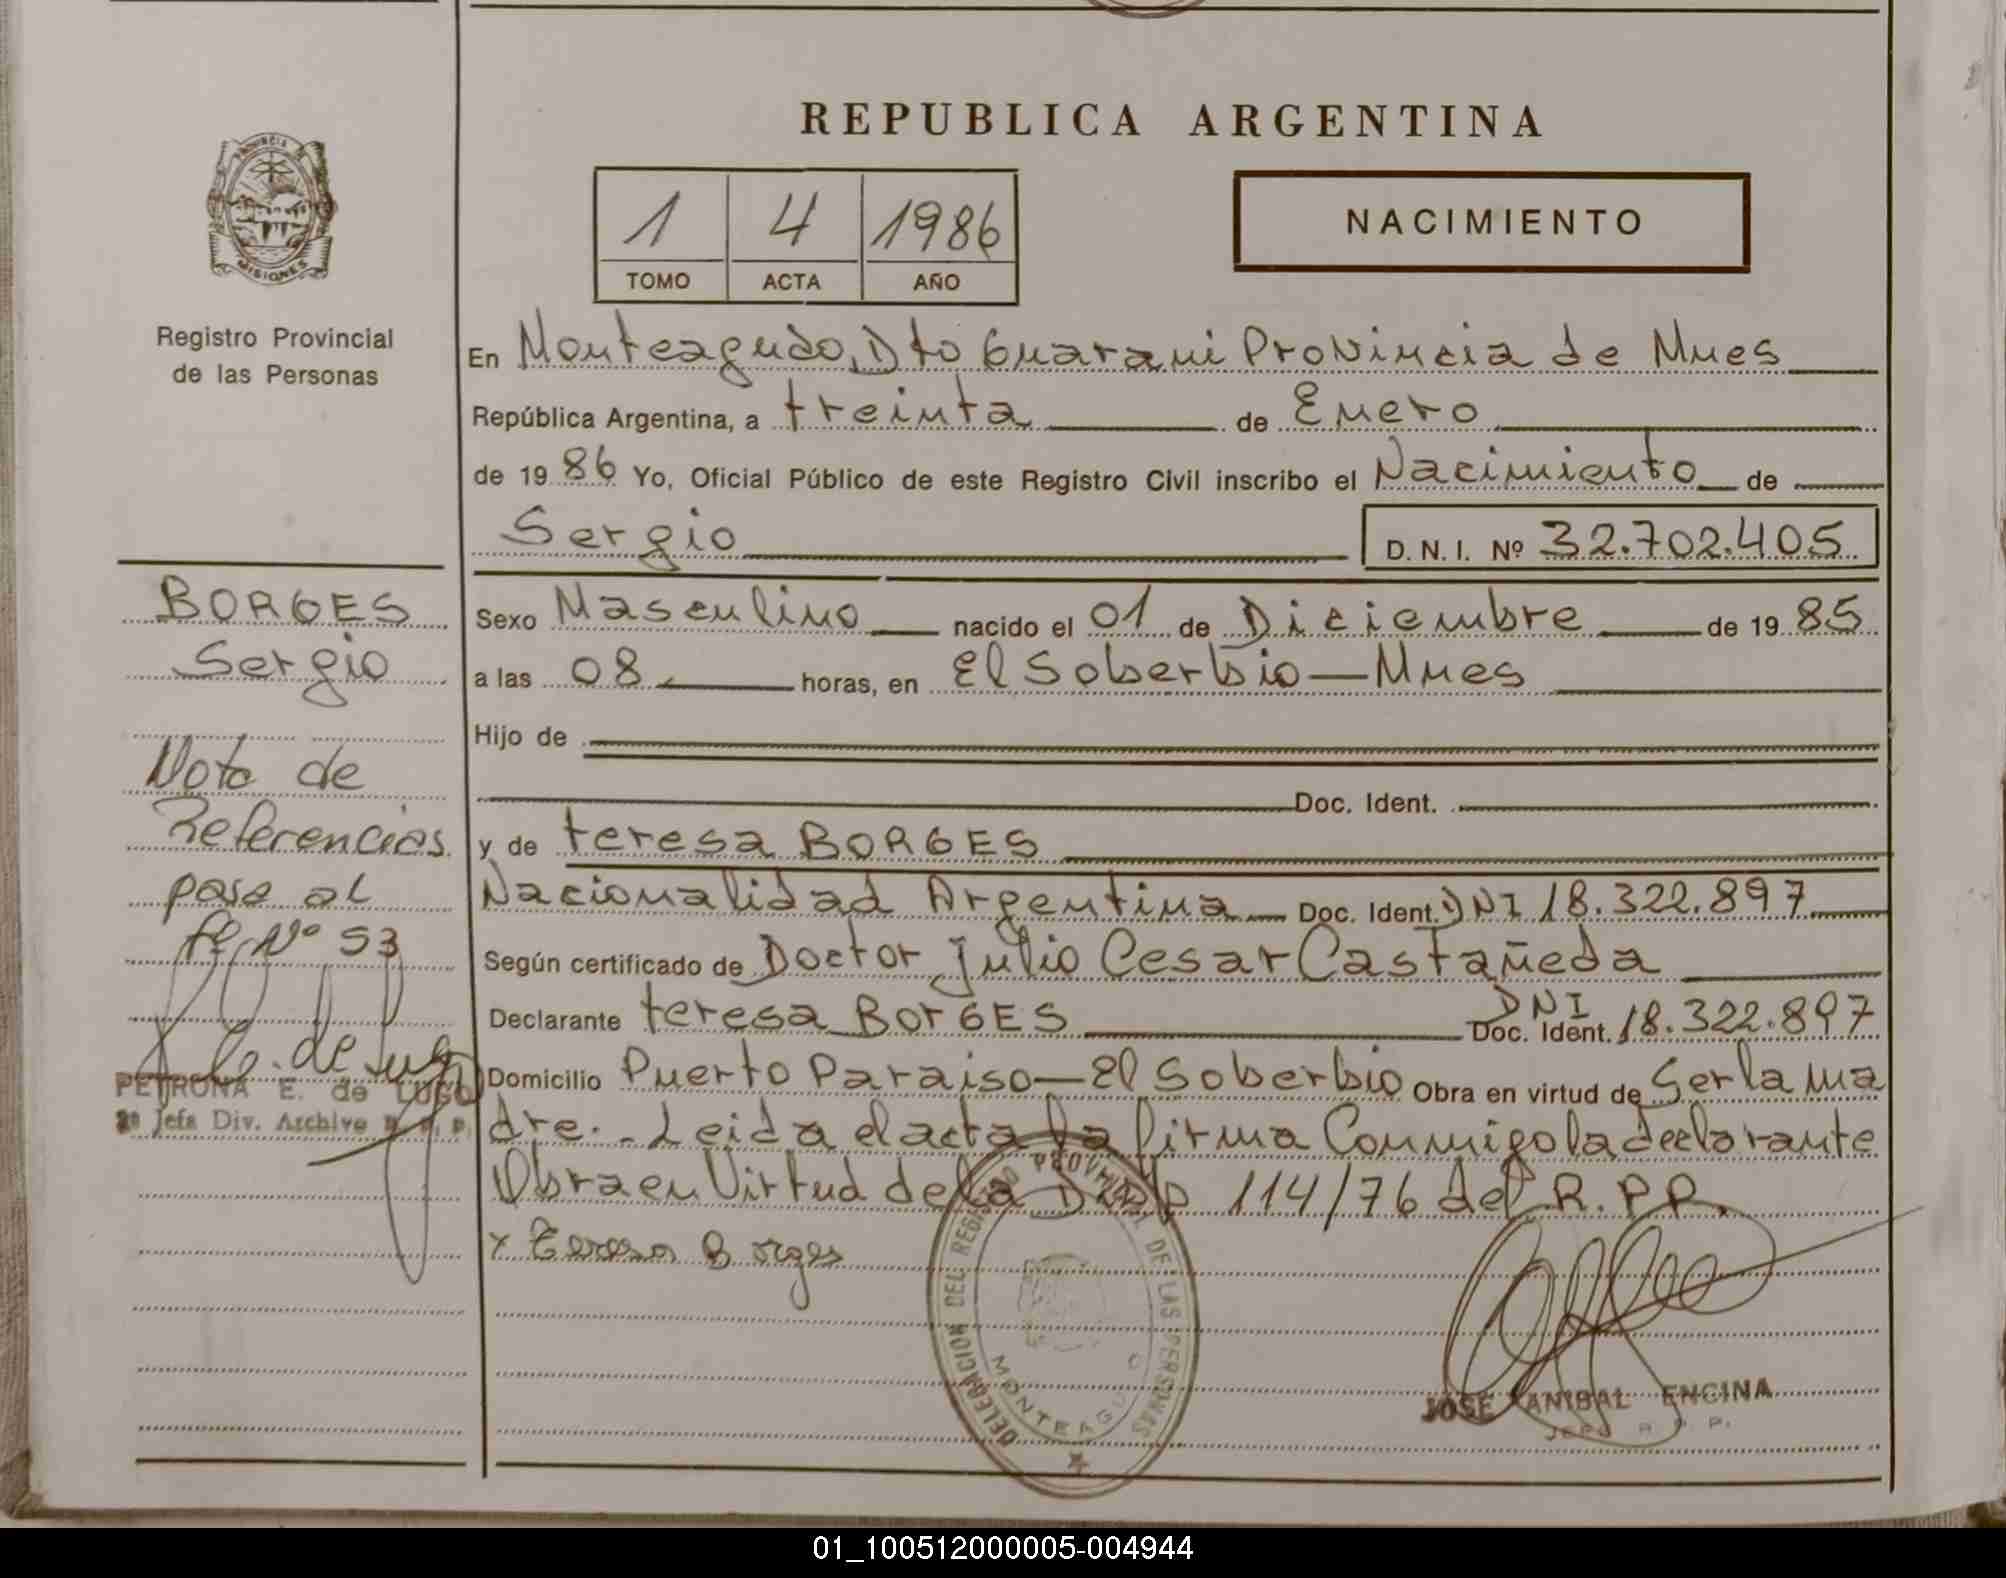 REPUBLICA ARGENTINA
PROVINCIA DE MISIONES
Registro Provincial
de las Personas
1 4 1986
TOMO ACTA AÑO
NACIMIENTO
En Monteagudo, Dto Guarani Provincia de Mnes
República Argentina, a treinta de Enero
de 1986 Yo, Oficial Público de este Registro Civil inscribo el Nacimiento de
Sergio D.N.I. Nº 32.702.405
BORGES
Sergio
Nota de
Referencias
pase al
fº Nº 53
PETRONA E. de LUGO
2º Jefa Div. Archivo R. P. P.
Sexo Masculino nacido el 01 de Diciembre de 1985
a las 08. horas, en El Soberbio — Mnes
Hijo de
Doc. Ident.
y de teresa BORGES
Nacionalidad Argentina Doc. Ident. DNI 18.322.897
Según certificado de Doctor Julio Cesar Castañeda
Declarante teresa BorGES DNI Doc. Ident. 18.322.897
Domicilio Puerto Paraiso — El Soberbio Obra en virtud de Ser la ma
dre. - Leida el acta la firma Conmigo la declarante
Obra en Virtud de la 114/76 del R.P.P.
x Teresa Borges
DELEGACION DEL REGISTRO PROVINCIAL DE LAS PERSONAS
MONTEAGUDO
JOSE ANIBAL ENCINA
JEFE R. P. P.
01_100512000005-004944